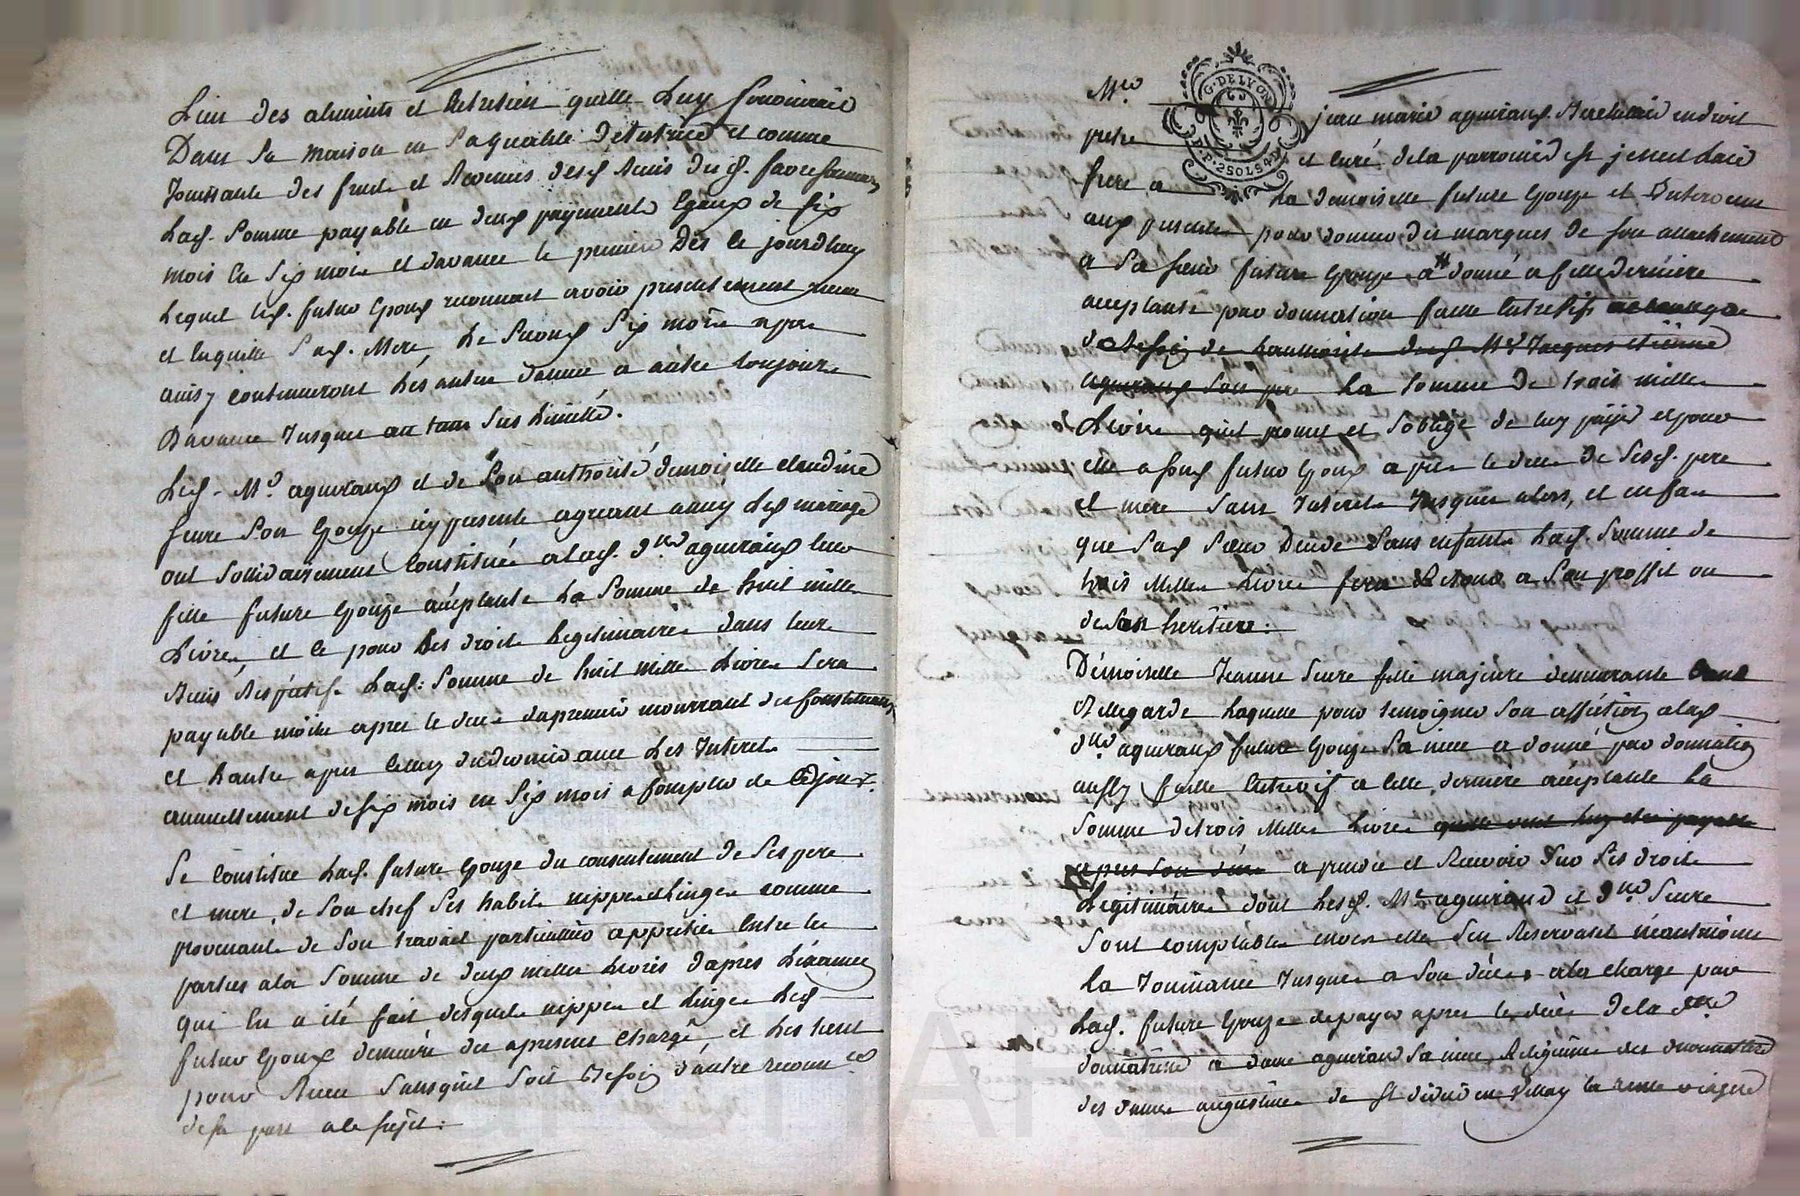 Lieu des aliments et entretien quelle luy fourniroit
Dans sa maison en sa qualité de tutrice et comme
Jouissante des fruits et revenus desd biens dud. s.
lad. somme payable en deux payements egaux de six
mois en six mois et davance le premier dès ce jourdhuy
lequel led. futur epoux reconnoit avoir presentement receu
et laquitte sad. Mere, le second six mois apres
ainsy continueront les autres d'année a autre toujours
Davance jusques au tems sus limitté.
Led. Mr. aguiraud et de son authorité demoiselle claudine
seure son epouze icy presente agreant aussy led mariage
ont sollidairement constitué a lad. dlle aguiraud leur
fille future epouze acceptante la somme de huit mille
Livres, et ce pour ses droits legitimaires dans leurs
biens respectifs. lad. somme de huit mille livres sera
payable moitié apres le deces du premier mourrant des constituants
et l'autre apres celuy du dernier avec les interets
annuellement de six mois en six mois a compter de ce jour.
Se constitue lad. future epouze du consentement de ses pere
et mere, de son chef ses habits nippes et linges comme
provenants de son travail particullier apprétiés entre les
parties a la somme de deux milles livres d'après l'examen
qui en a été fait desquels nippes et linges led.
futur epoux demeure des apresent chargé, et les tient
pour receu sans quil soit besoin d'autre reconn.ce
de sa part a ce sujet.
Mre
G. DE LYON
jean marie aguiraud Bachelier en droit
D.P. 2 SOLS 4 D.
pretre et curé de la parroisse de
frere a la demoiselle future epouze et intervenu
aux presentes pour donner des marques de son attachement
a sa sœur future epouze a donné a cette derniere
acceptante par donnation faite entre vifs
de de Mr Jacques etienne
aguiraud son pere la somme de trois milles
Livres quil promet et s'oblige de luy payer et pour
elle a sond futur epoux apres le deces de sesd. pere
et mere sans interets jusques alors, et en cas
que sad sœur décéde sans enfants lad. somme de
trois milles livres fera retour a son proffit ou
de ses heritiers.
Démoiselle Jeanne seure fille majeure demeurante
Bellegarde laquelle pour temoigner son affection a lad
dlle aguiraud future epouze sa niece a donné par donnation
aussy faitte entre vifs a cette derniere acceptante la
somme de trois milles livres quelle veut luy etre payable
apres son déces a prendre et recevoir sur ses droits
Legitimaires dont lesd. Mr aguiraud et dlle seure
sont comptables envers elle s'en reservant néantmoins
la jouissance jusques a son déces a la charge par
lad. future epouze de payer apres le deces de la
donnatrice a dame aguiraud sa niece religieuse des
des dames augustines de st didier en velay la rente viagere